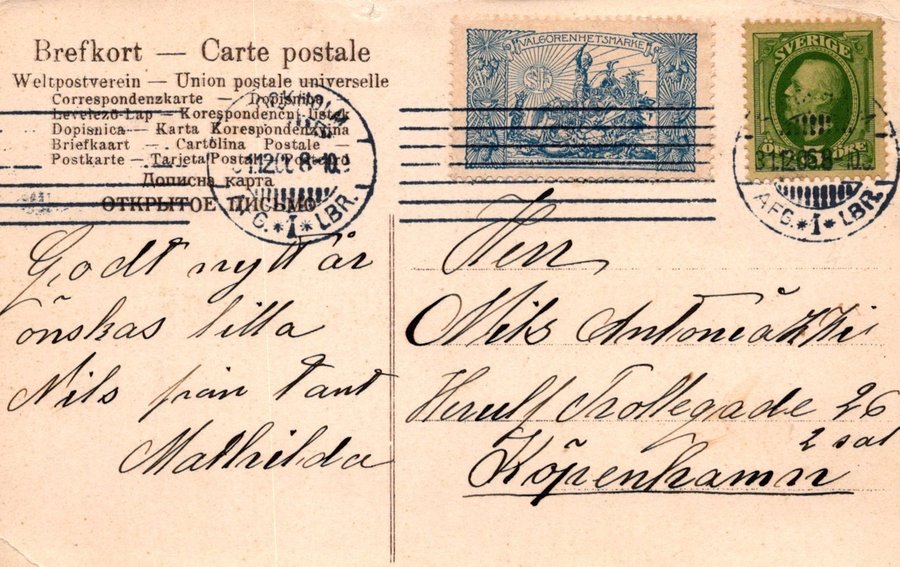 Brefkort — Carte postale
Weltpostverein — Union postale universelle
Correspondenzkarte — Dopisnice
Levelező-Lap — Korespondenčni listek
Dopisnica — Karta Korespondenzyjna
Briefkaart — Cartolina Postale —
Postkarte — Tarjeta Postal
Дописна карта
ОТКРЫТОЕ ПИСЬМО
VÄLGÖRENHETSMÄRKE
SVERIGE
ÖRE 5 ÖRE
31.12.05 8-10
AFG. * I * LBR.
AFG. * I * LBR.
Godt nytt år
önskas lilla
Nils från tant
Mathilda
Herr
Nils
Herulf Trollegade 26
2 sal
Köpenhamn